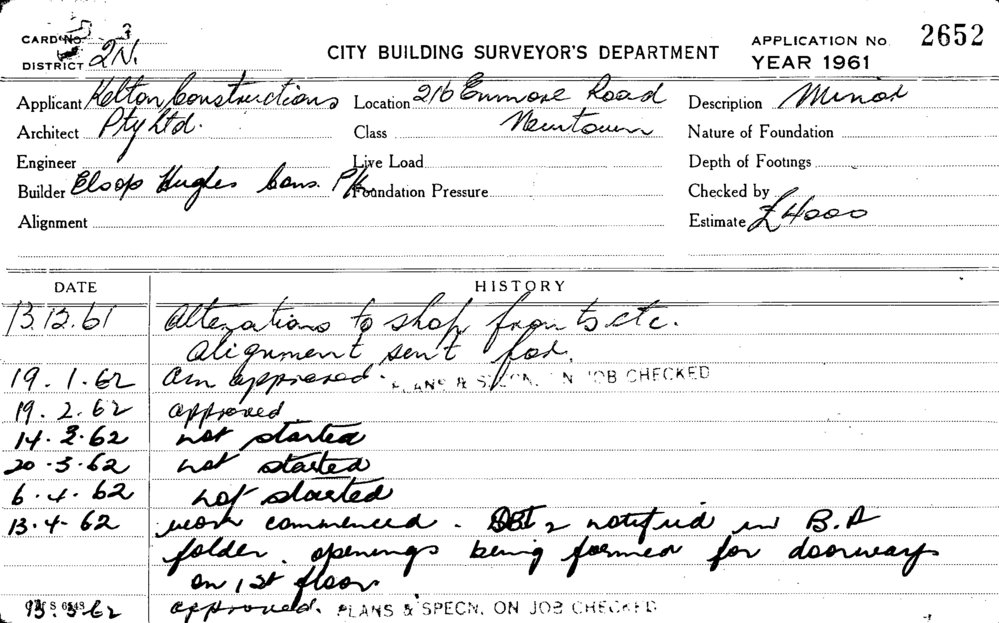 CARD No. 3
DISTRICT 2N.
CITY BUILDING SURVEYOR'S DEPARTMENT
APPLICATION No. 2652
YEAR 1961
Applicant Kelton Constructions Location 216 Enmore Road Description Minor
Architect Pty Ltd. Class Newtown Nature of Foundation
Engineer Live Load Depth of Footings
Builder Hughes Cons. P/L Foundation Pressure Checked by
Alignment Estimate £4000
DATE HISTORY
13.12.61 Alterations to shop fronts etc.
Alignment sent for.
19.1.62 approved. PLANS & SPECN. ON JOB CHECKED
19.2.62 approved
14.3.62 not started
20.3.62 not started
6.4.62 not started
13.4.62 work commenced. notified in B.A
folder. openings being formed for doorways
on 1st floor.
approved. PLANS & SPECN. ON JOB CHECKED